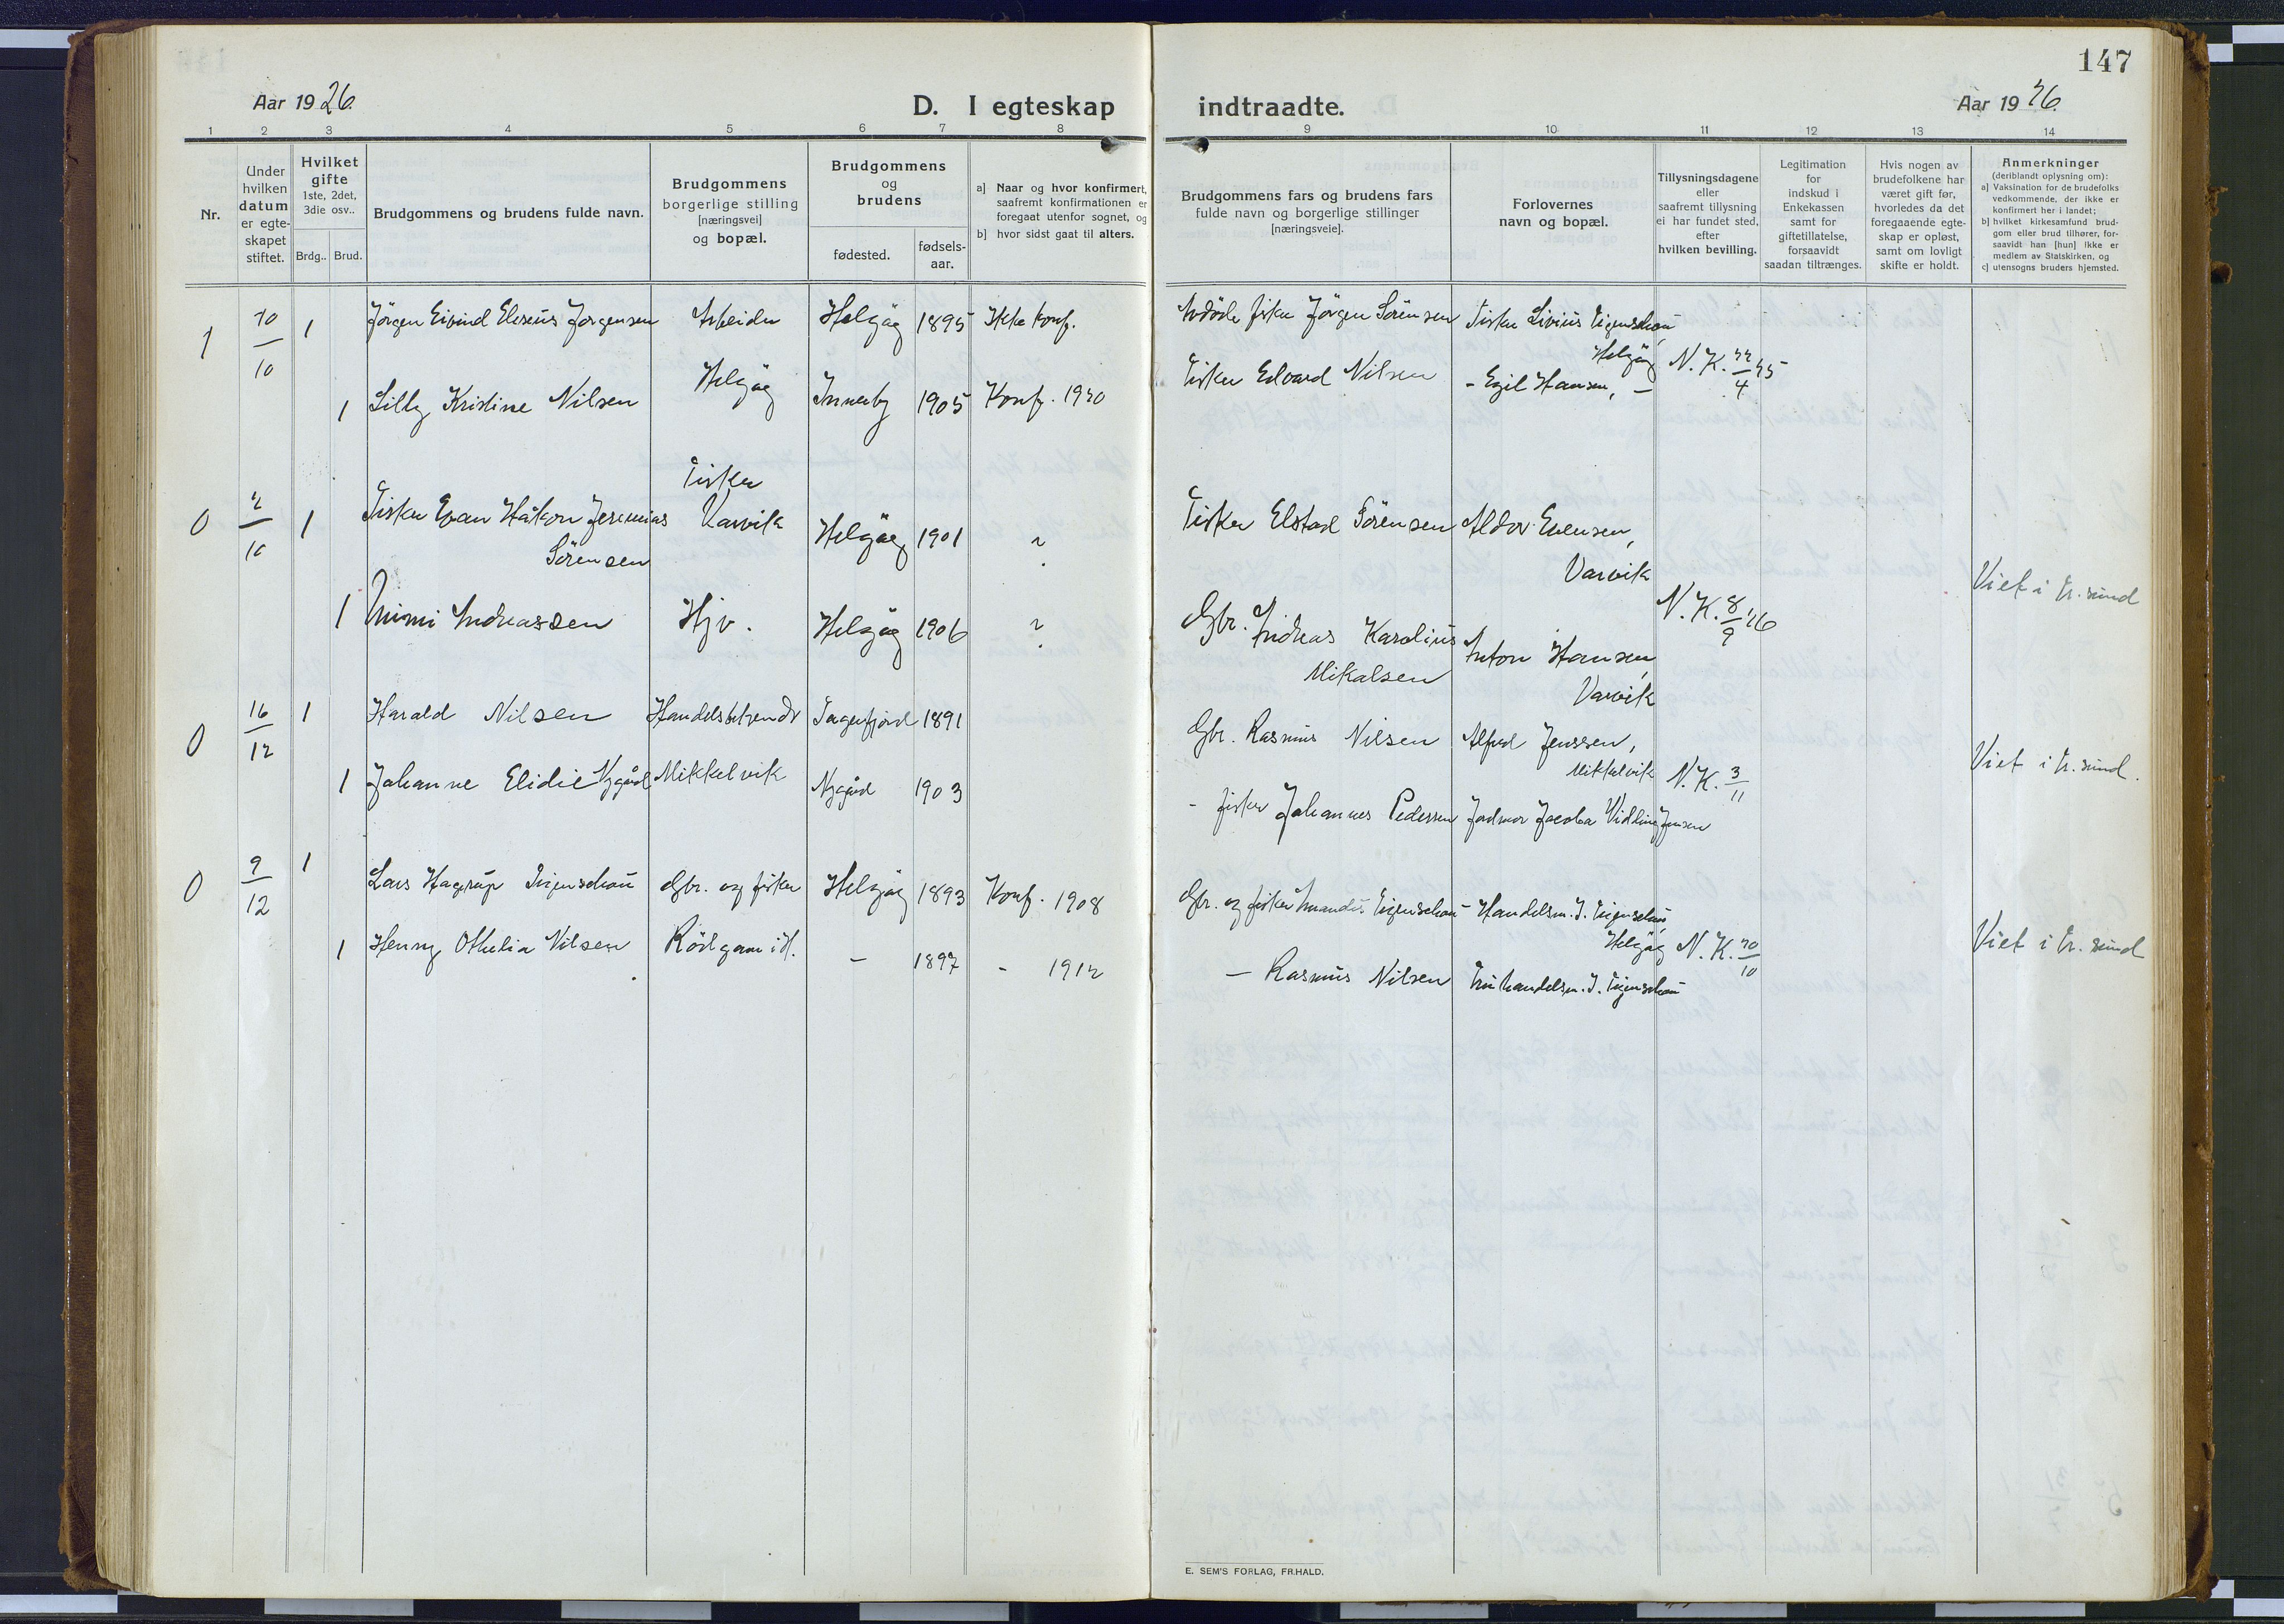 147
Aar 1926.
D. I egteskap indtraadte.
Aar 1926.
1 2 3 4 5 6 7 8 9 10 11 12 13 14
Nr.
Under hvilken datum er egte-skapet stiftet.
Hvilket gifte 1ste, 2det, 3die osv..
Brdg.. Brud.
Brudgommens og brudens fulde navn.
Brudgommens borgerlige stilling [næringsvei] og bopæl.
Brudgommens og brudens
fødested.
fødsels-aar.
a] Naar og hvor konfirmert, saafremt konfirmationen er foregaat utenfor sognet, og
b] hvor sidst gaat til alters.
Brudgommens fars og brudens fars fulde navn og borgerlige stillinger [næringsveie].
Forlovernes navn og bopæl.
Tillysningsdagene eller saafremt tillysning ei har fundet sted, efter hvilken bevilling.
Legitimation for indskud i Enkekassen samt for giftetillatelse, forsaavidt saadan tiltrænges.
Hvis nogen av brudefolkene har været gift før, hvorledes da det foregaaende egte-skap er opløst, samt om lovligt skifte er holdt.
Anmerkninger (deriblandt oplysning om):
a] Vaksination for de brudefolks vedkommende, der ikke er konfirmert her i landet;
b] hvilket kirkesamfund brud-gom eller brud tilhører, for-saavidt han [hun] ikke er medlem av Statskirken, og
c] utensogns bruders hjemsted.
1 10/10 1 Jörgen Eivind Eleseus Jörgensen Arbeider Helgöy 1895 Ikke konf. Avdöde fisker Jörgen Sörensen Fisker Livius Eigenschou,
Helgöy N.K. 22/4 25
1 Lilly Kristine Nilsen Helgöy Innerby 1905 Konf. 1920 Fisker Edvard Nilsen - Egil Hansen, -
Fisker
0 2/10 1 Fisker Evan Håkon Jeremias Varvik Helgöy 1901 ? Fisker Elstad Sörensen Aldor Evensen,
Sörensen
Varvik
N.K. 8/9 26 Viet i Tr. sund
1 Mimi Andreassen Hjv. Helgöy 1906 ? Gbr. Andreas Karolius Anton Hansen,
Mikalsen Varvik
0 16/12 1 Harald Nilsen Handelsbetjent 1891 Gbr. Rasmus Nilsen Alfred Jenssen,
Mikkelvik N.K. 3/11 Viet i Tr. sund.
1 Johanne Elidie Nygård Mikkelvik Nygård 1903 - fisker Johannes Pedersen Jordmor Jacoba Jensen
0 9/12 1 Lars Hagerup Eigenschou Gbr. og fisker Helgöy 1893 Konf. 1908 Gbr. og fisker Amandus Eigenschou Handelsm. J. Eigenschou,
Helgöy N.K. 20/10 Viet i Tr. sund
1 Henny Othelia Nilsen Rödgam i H. - 1897 - 1912 - Rasmus Nilsen Fru handelsm. J. Eigenschou
E. SEM'S FORLAG, FR.HALD.